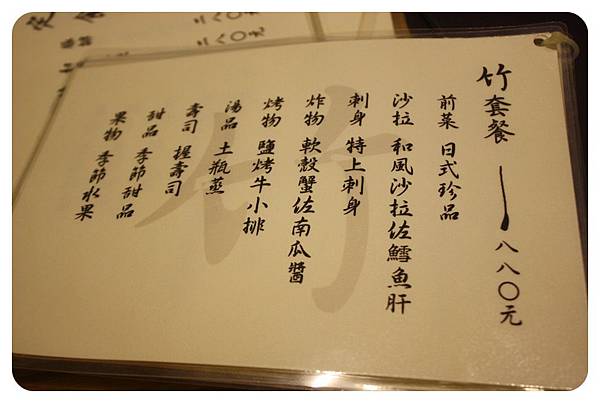 竹套餐 一八八〇元
前菜 日式珍品
沙拉 和風沙拉佐鱈魚肝
刺身 特上刺身
炸物 軟殼蟹佐南瓜醬
烤物 鹽烤牛小排
湯品 土瓶蒸
壽司 握壽司
甜品 季節甜品
果物 季節水果
竹